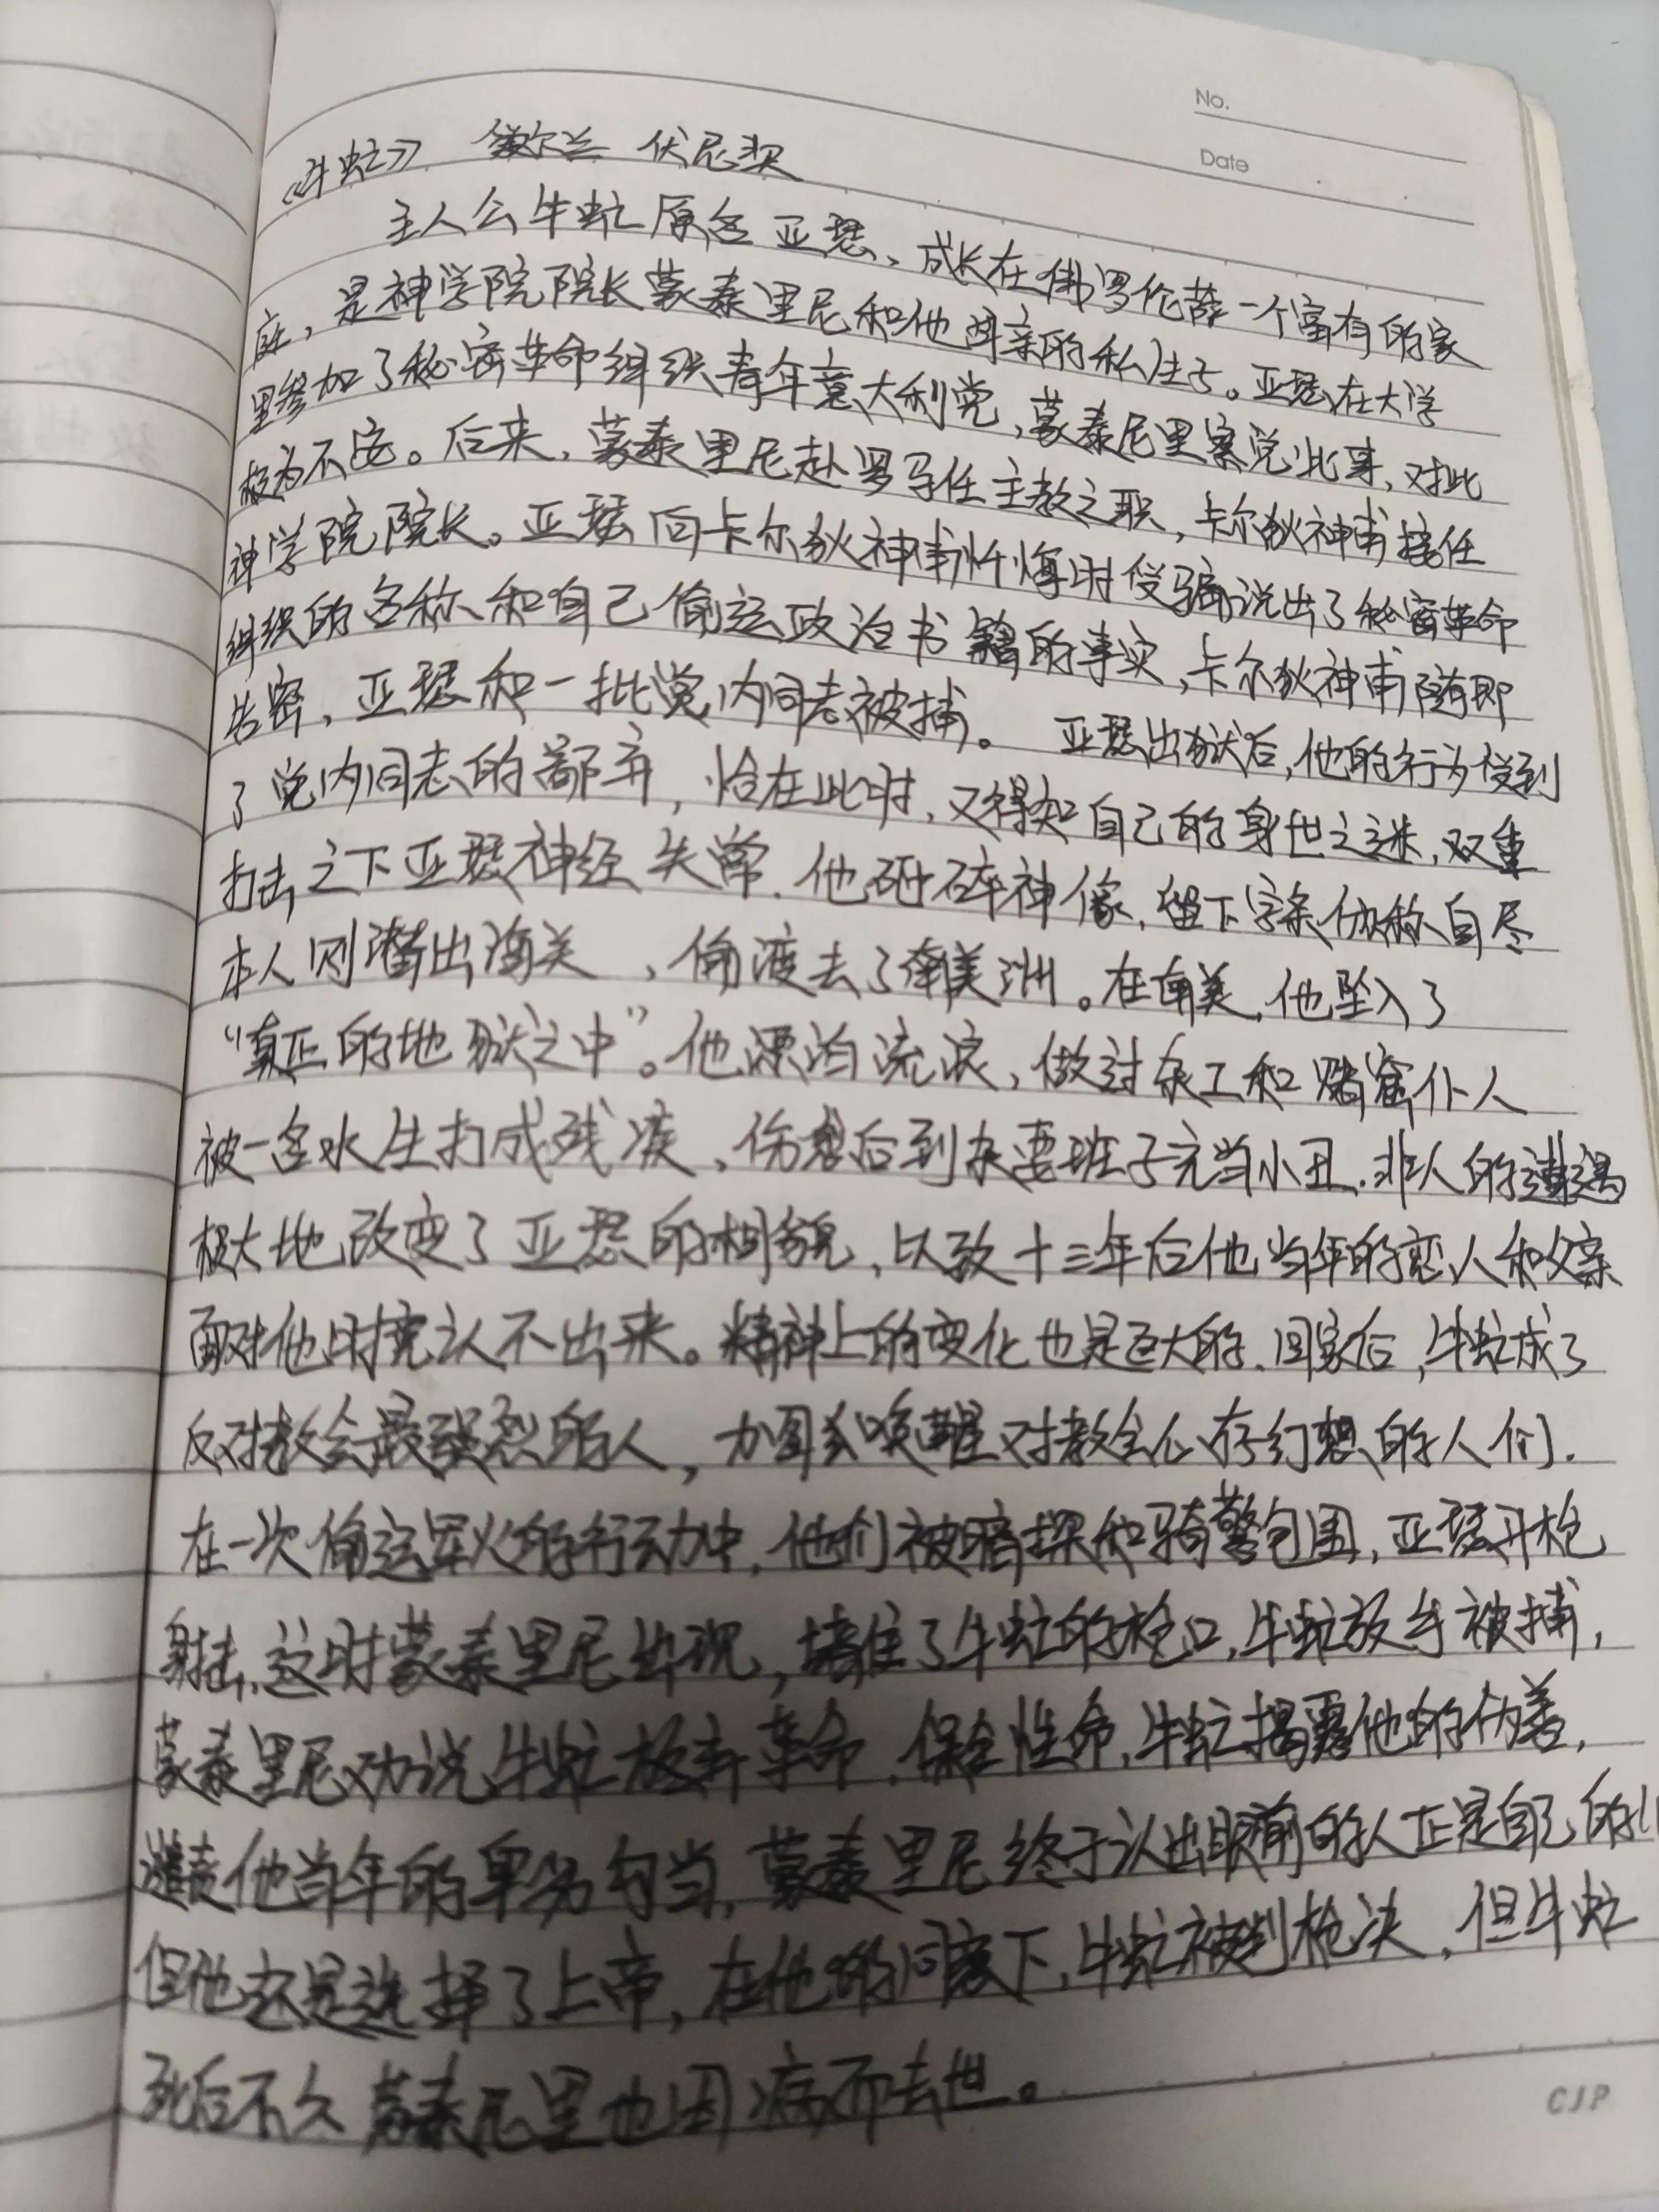 No.
Date
《牛虻》 爱尔兰 伏尼契
主人公牛虻原名亚瑟、成长在佛罗伦萨一个富有的家
庭，是神学院院长蒙泰里尼和他母亲的私生子。亚瑟在大学
里参加了秘密革命组织青年意大利党，蒙泰尼里察觉此事，对此
极为不安。后来，蒙泰里尼赴罗马任主教之职，卡尔狄神甫接任
神学院院长。亚瑟向卡尔狄神甫忏悔时受骗说出了秘密革命
组织的名称和自己偷运政治书籍的事实，卡尔狄神甫随即
告密，亚瑟和一批党内同志被捕。 亚瑟出狱后，他的行为受到
了党内同志的鄙弃，恰在此时，又得知自己的身世之谜，双重
打击之下亚瑟神经失常．他砸碎神像，留下字条伪称自尽
本人则潜出海关，偷渡去了南美洲。在南美，他坠入了
“真正的地狱之中”。他漂泊流浪，做过杂工和赌窟仆人
被一名水生打成残疾、伤愈后到杂耍班子充当小丑．非人的遭遇
极大地改变了亚瑟的相貌，以致十三年后他当年的恋人和父亲
面对他时竟认不出来。精神上的变化也是巨大的．回家后，牛虻成了
反对教会最强烈的人，力图唤醒对教会心存幻想的人们．
在一次偷运军火的行动中，他们被暗探和骑警包围，亚瑟开枪
射击，这时蒙泰里尼出现，堵住了牛虻的枪口，牛虻放手被捕，
蒙泰里尼劝说牛虻放弃革命．保全性命，牛虻揭露他的伪善，
谴责他当年的卑劣勾当，蒙泰里尼终于认出眼前的人正是自己的
但他还是选择了上帝，在他的同意下，牛虻被判枪决，但牛虻
死后不久蒙泰尼里也因病而去世。
CJP